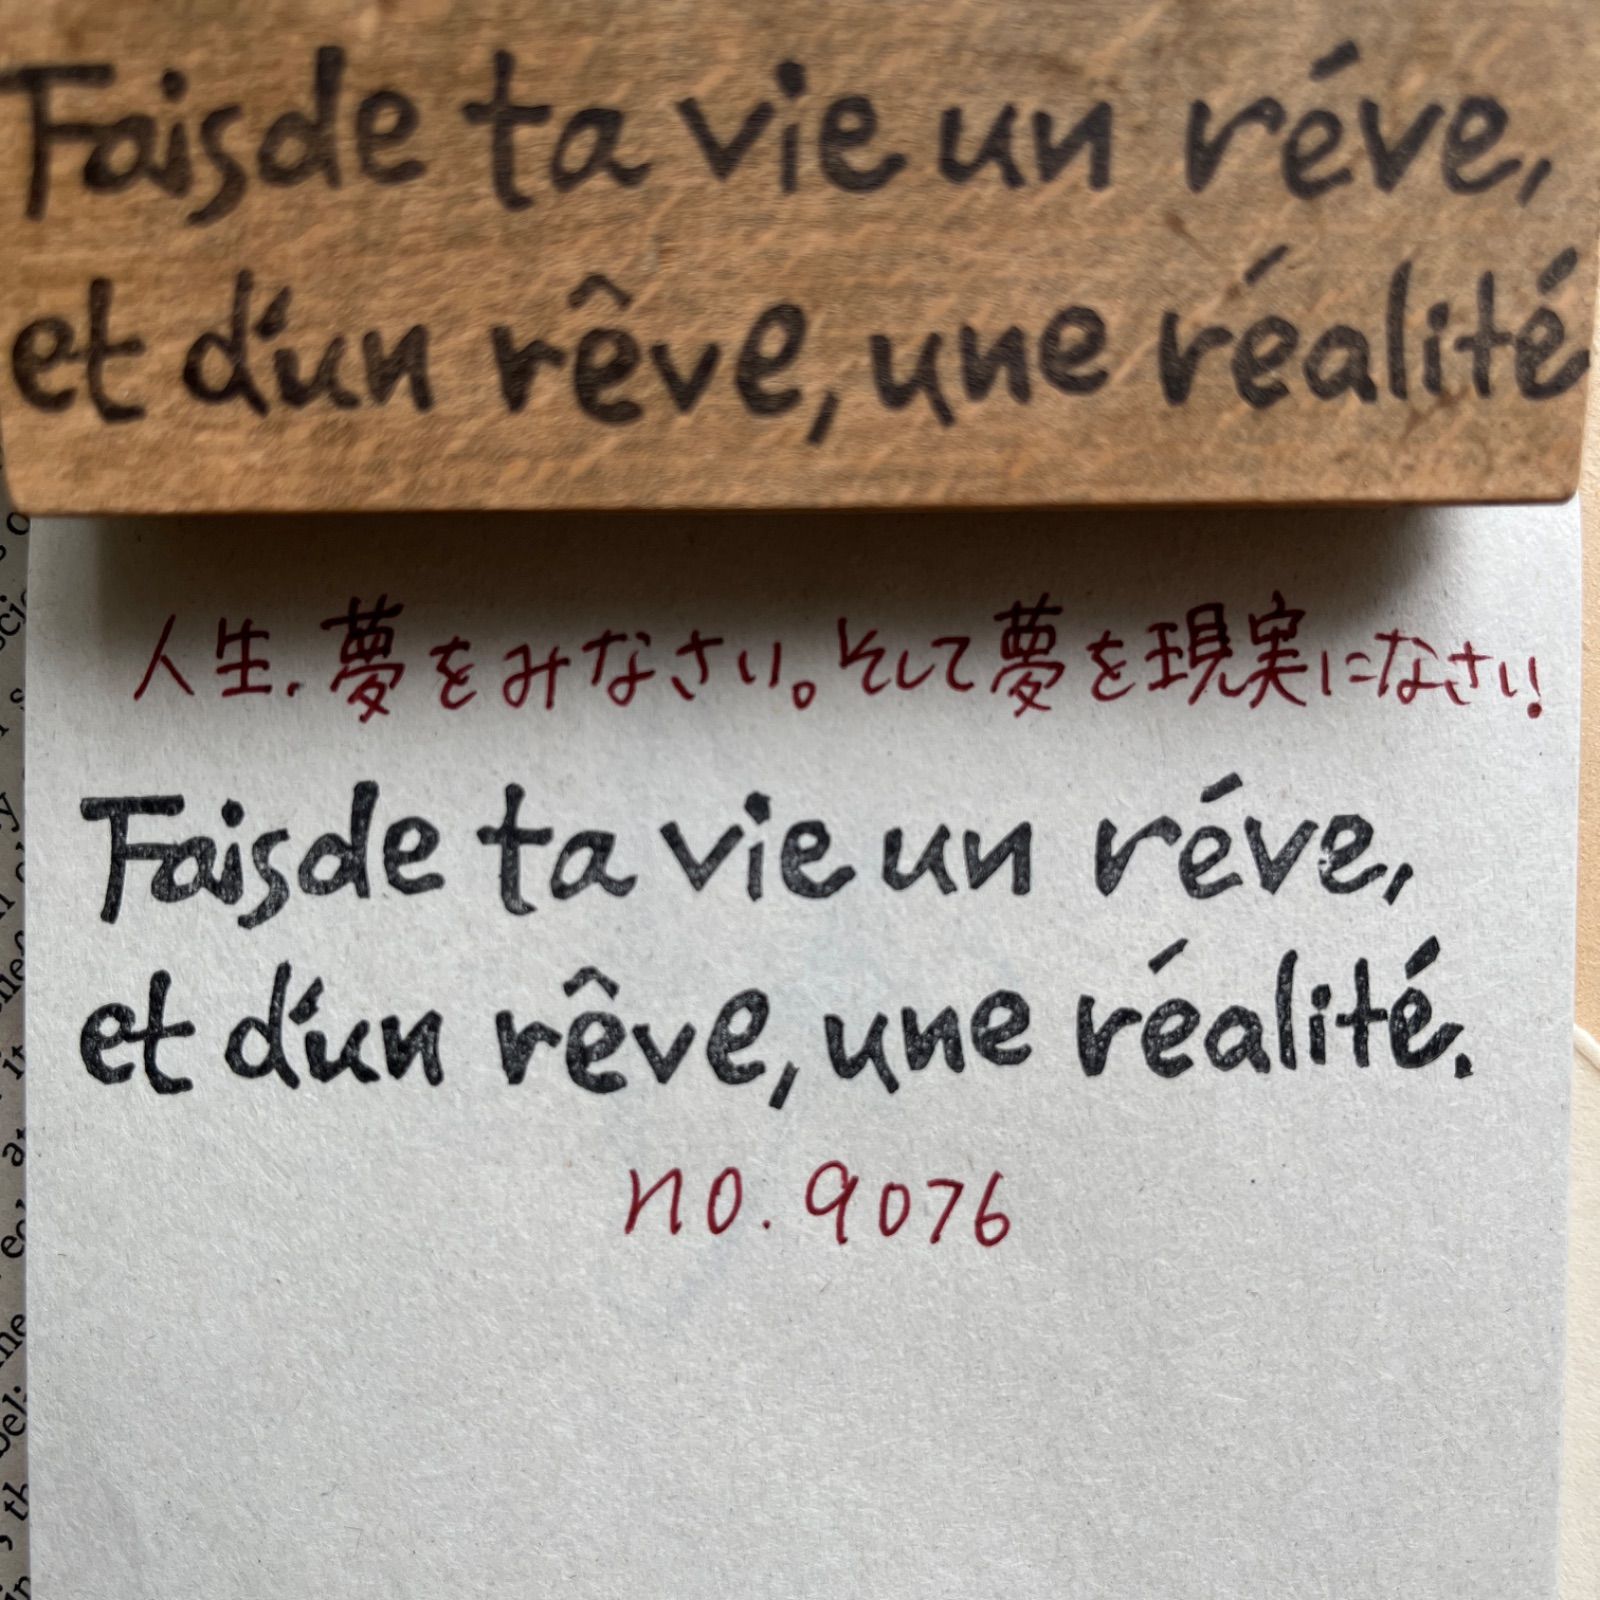 Fais de ta vie un réve,
et d'un rêve, une réalité
人生、夢をみなさい。そして夢を現実になさい!
Fais de ta vie un réve,
et d'un rêve, une réalité.
no. 9076